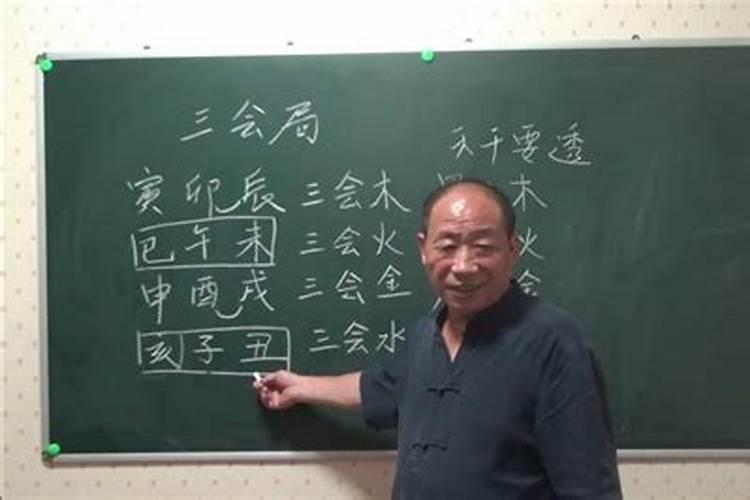 三会局
天干要透
寅卯辰 三会木 木
巳午未 三会火 火
申酉戌 三会金 金
亥子丑 三会水